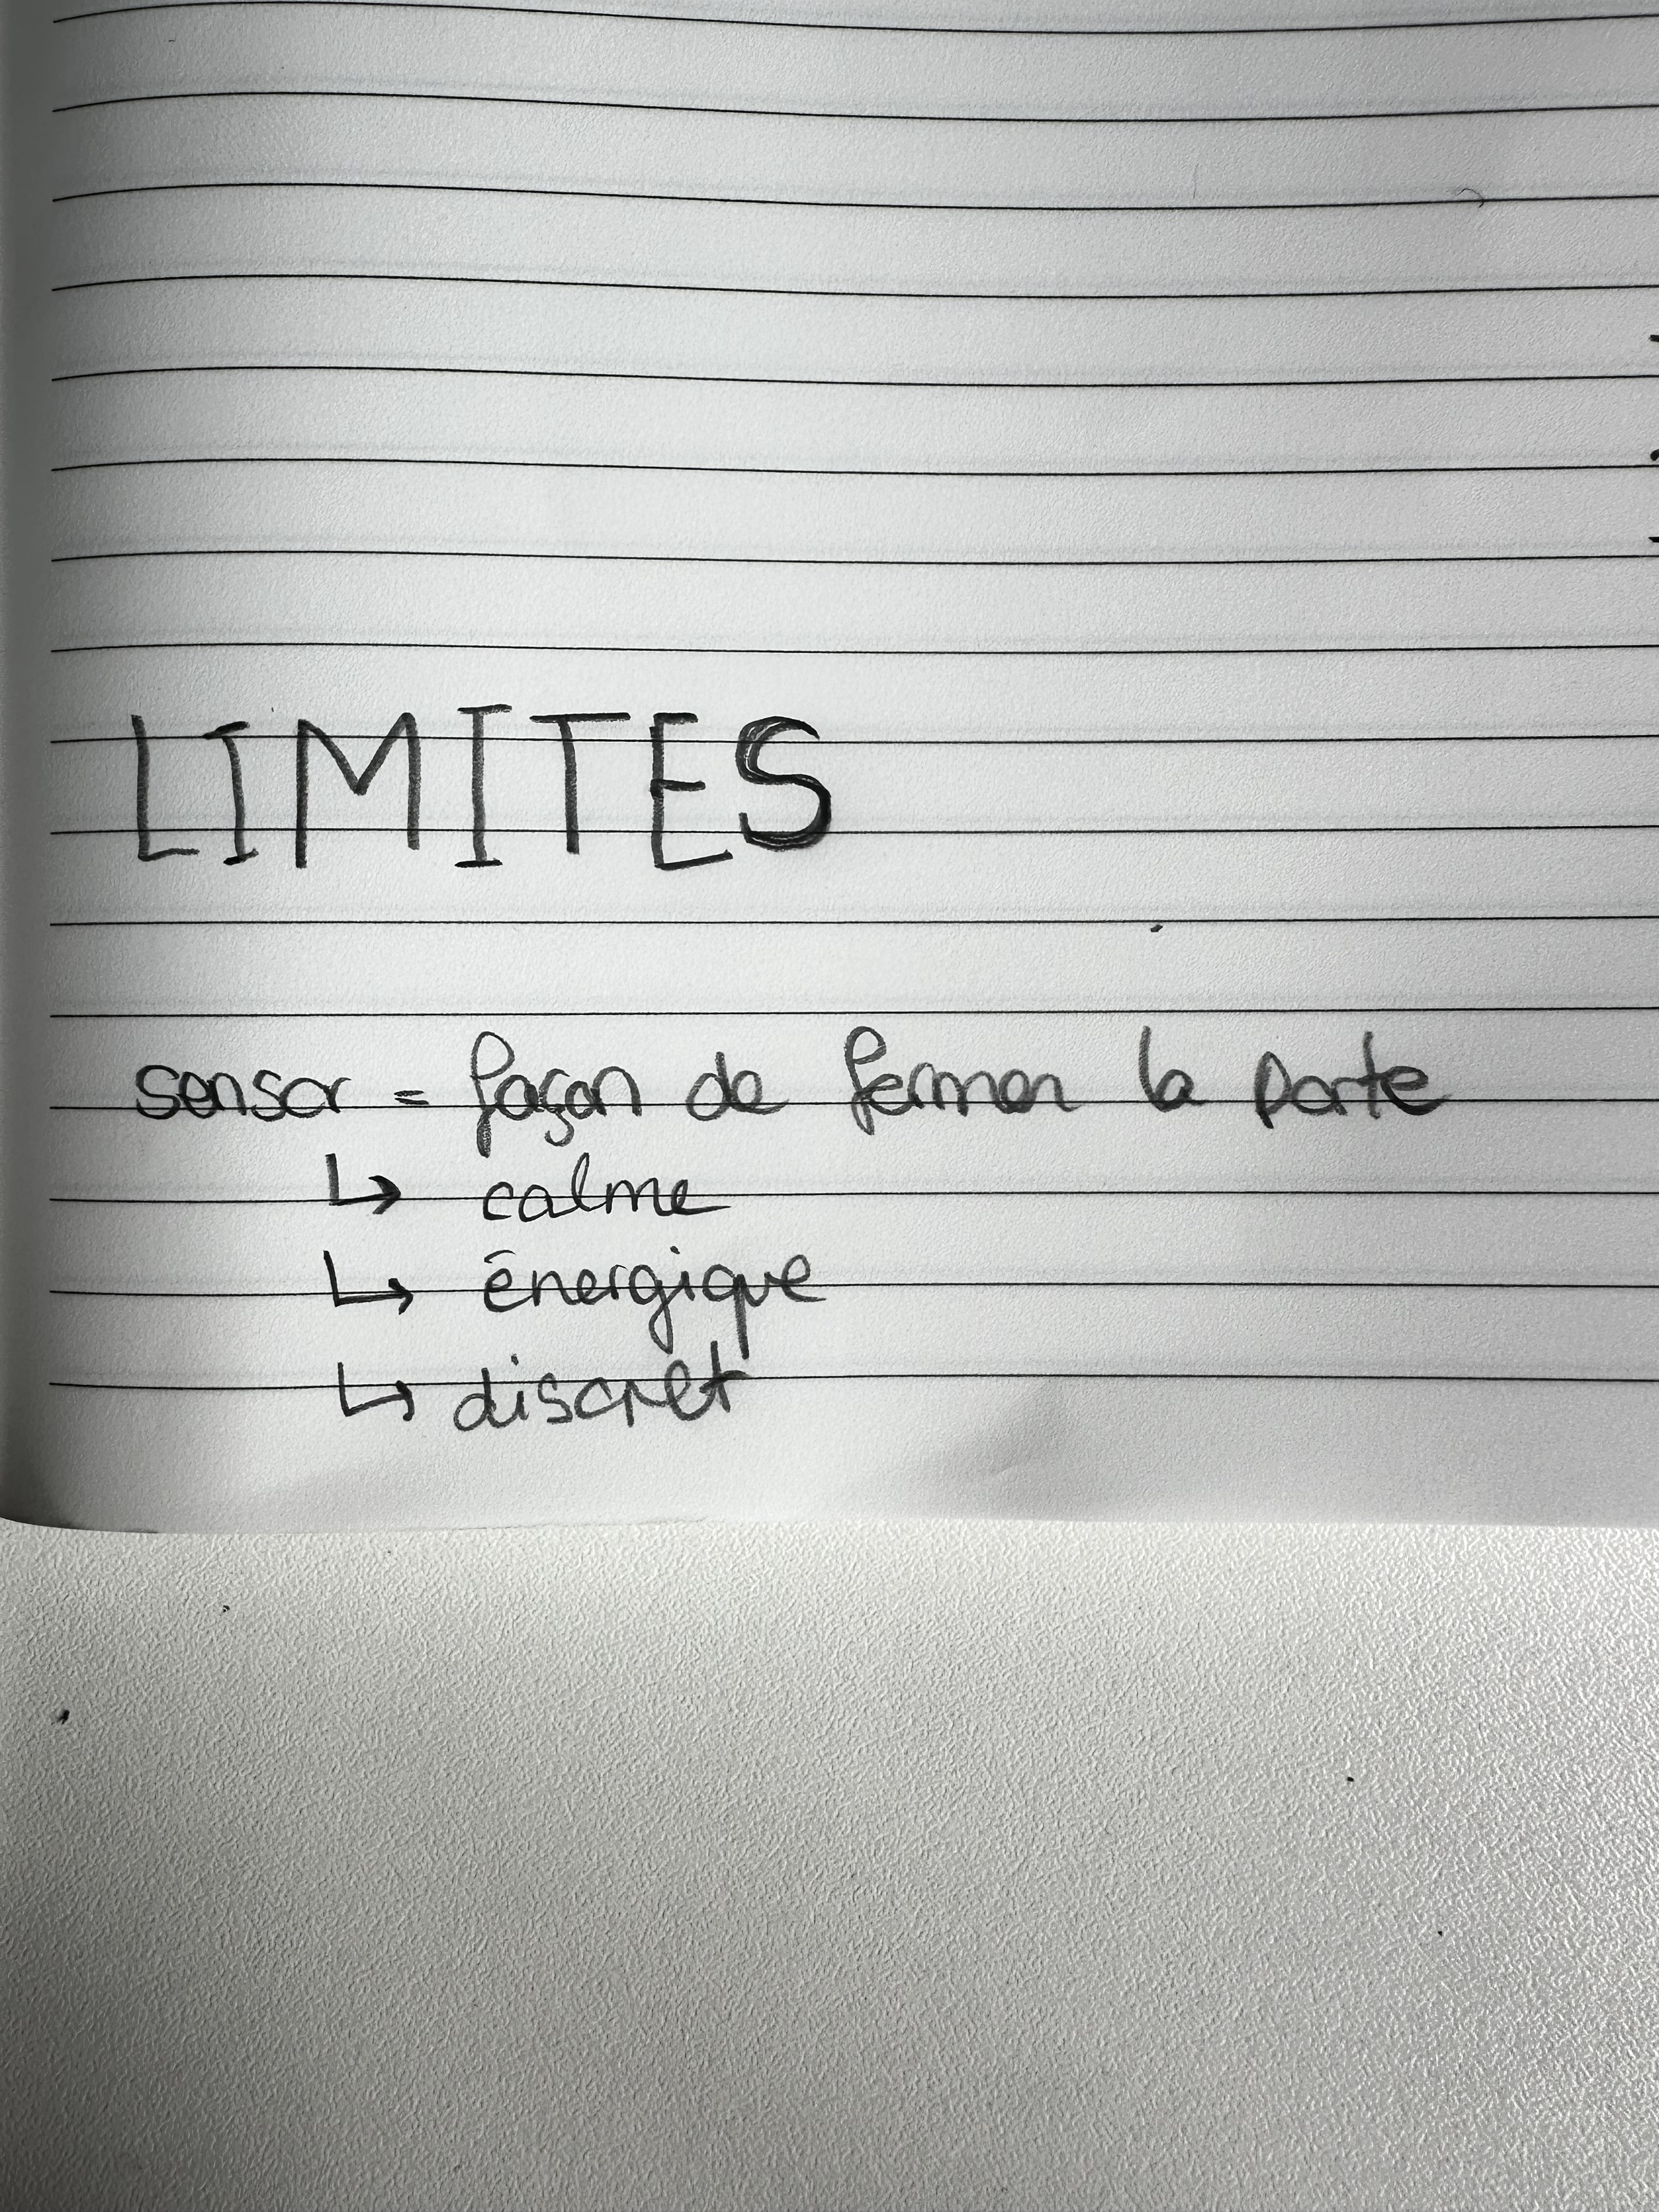 LIMITES
sensor = façon de fermer la porte
↳ calme
↳ énergique
↳ discret